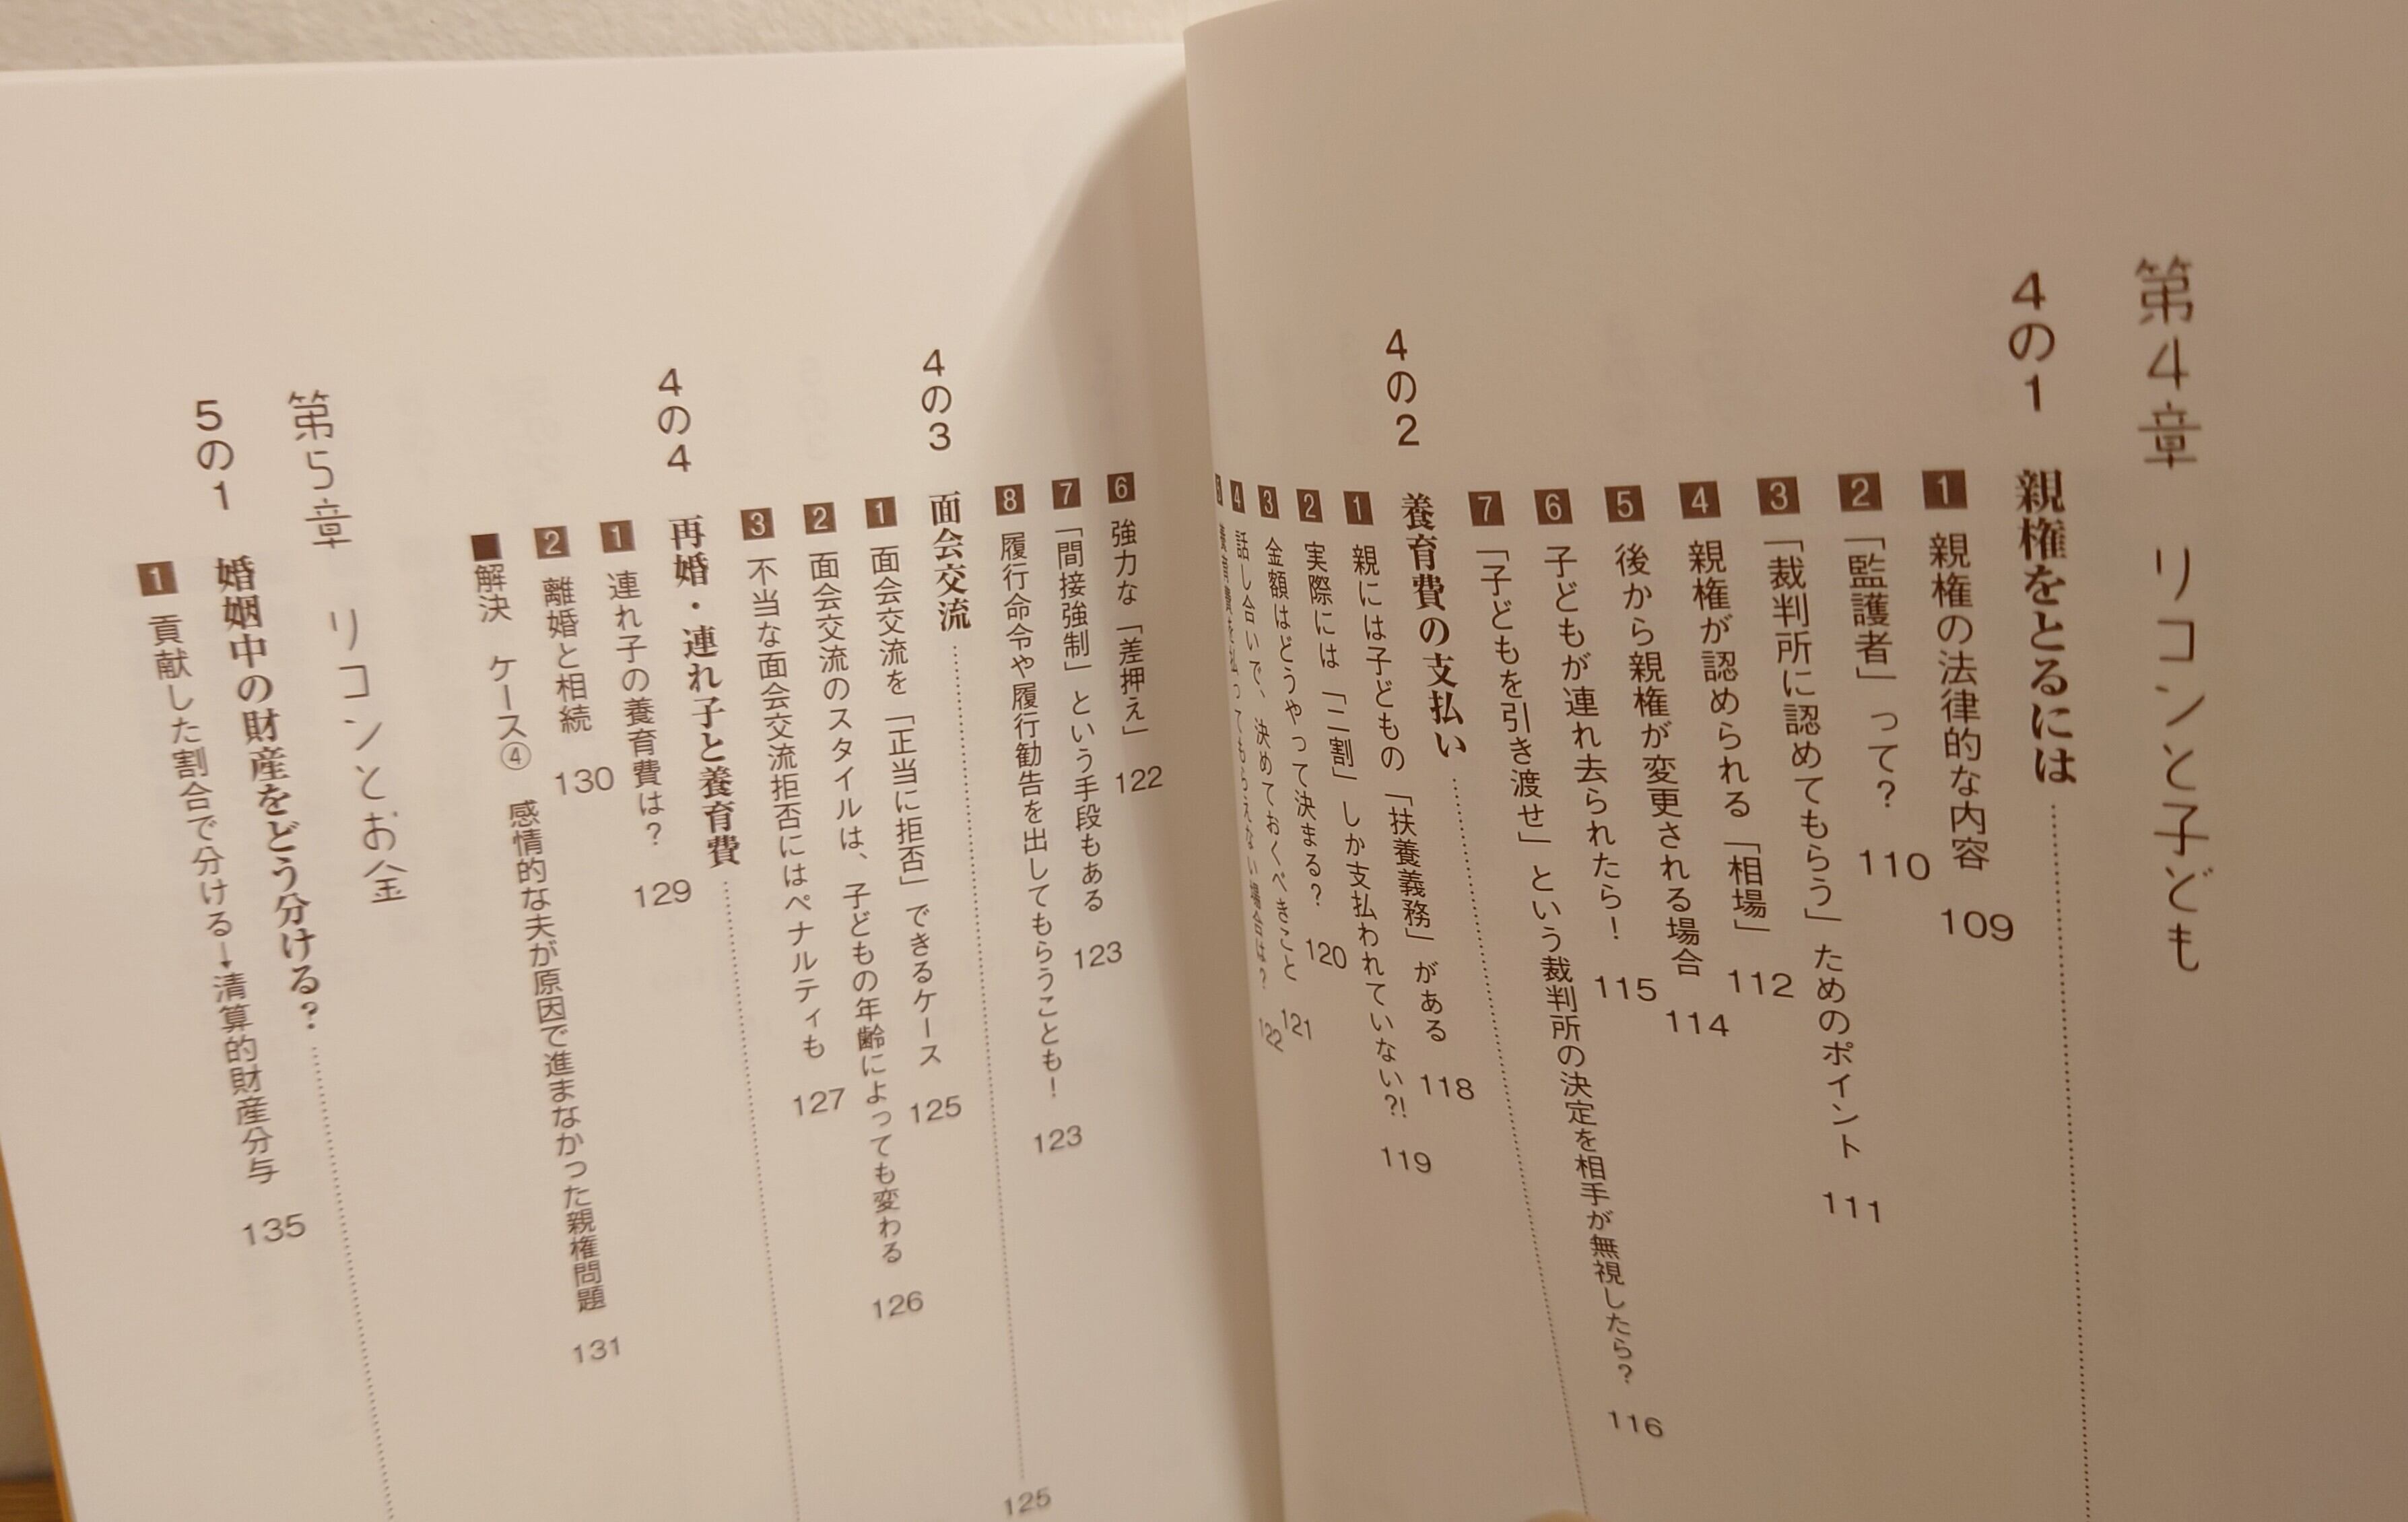 第4章 リコンと子ども
4の1 親権をとるには
1 親権の法律的な内容 109
2 「監護者」って? 110
3 「裁判所に認めてもらう」ためのポイント 111
4 親権が認められる「相場」 112
5 後から親権が変更される場合 114
6 子どもが連れ去られたら! 115
7 「子どもを引き渡せ」という裁判所の決定を相手が無視したら? 116
4の2 養育費の支払い
1 親には子どもの「扶養義務」がある 118
2 実際には「二割」しか支払われていない?! 119
3 金額はどうやって決まる? 120
4 話し合いで、決めておくべきこと 121
5 養育費を払ってもらえない場合は? 122
6 強力な「差押え」 122
7 「間接強制」という手段もある 123
8 履行命令や履行勧告を出してもらうことも! 123
4の3 面会交流 125
1 面会交流を「正当に拒否」できるケース 125
2 面会交流のスタイルは、子どもの年齢によっても変わる 126
3 不当な面会交流拒否にはペナルティも 127
4の4 再婚・連れ子と養育費
1 連れ子の養育費は? 129
2 離婚と相続 130
■解決 ケース④ 感情的な夫が原因で進まなかった親権問題 131
第5章 リコンとお金
5の1 婚姻中の財産をどう分ける?
1 貢献した割合で分ける→清算的財産分与 135